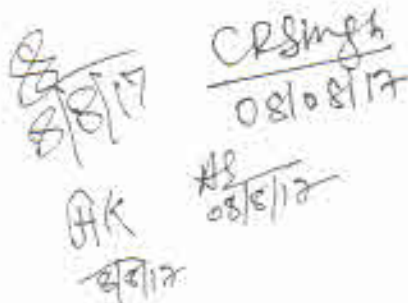 8/8/17
CRSingh
08/08/17
AS
08/8/17
AK
8/8/17